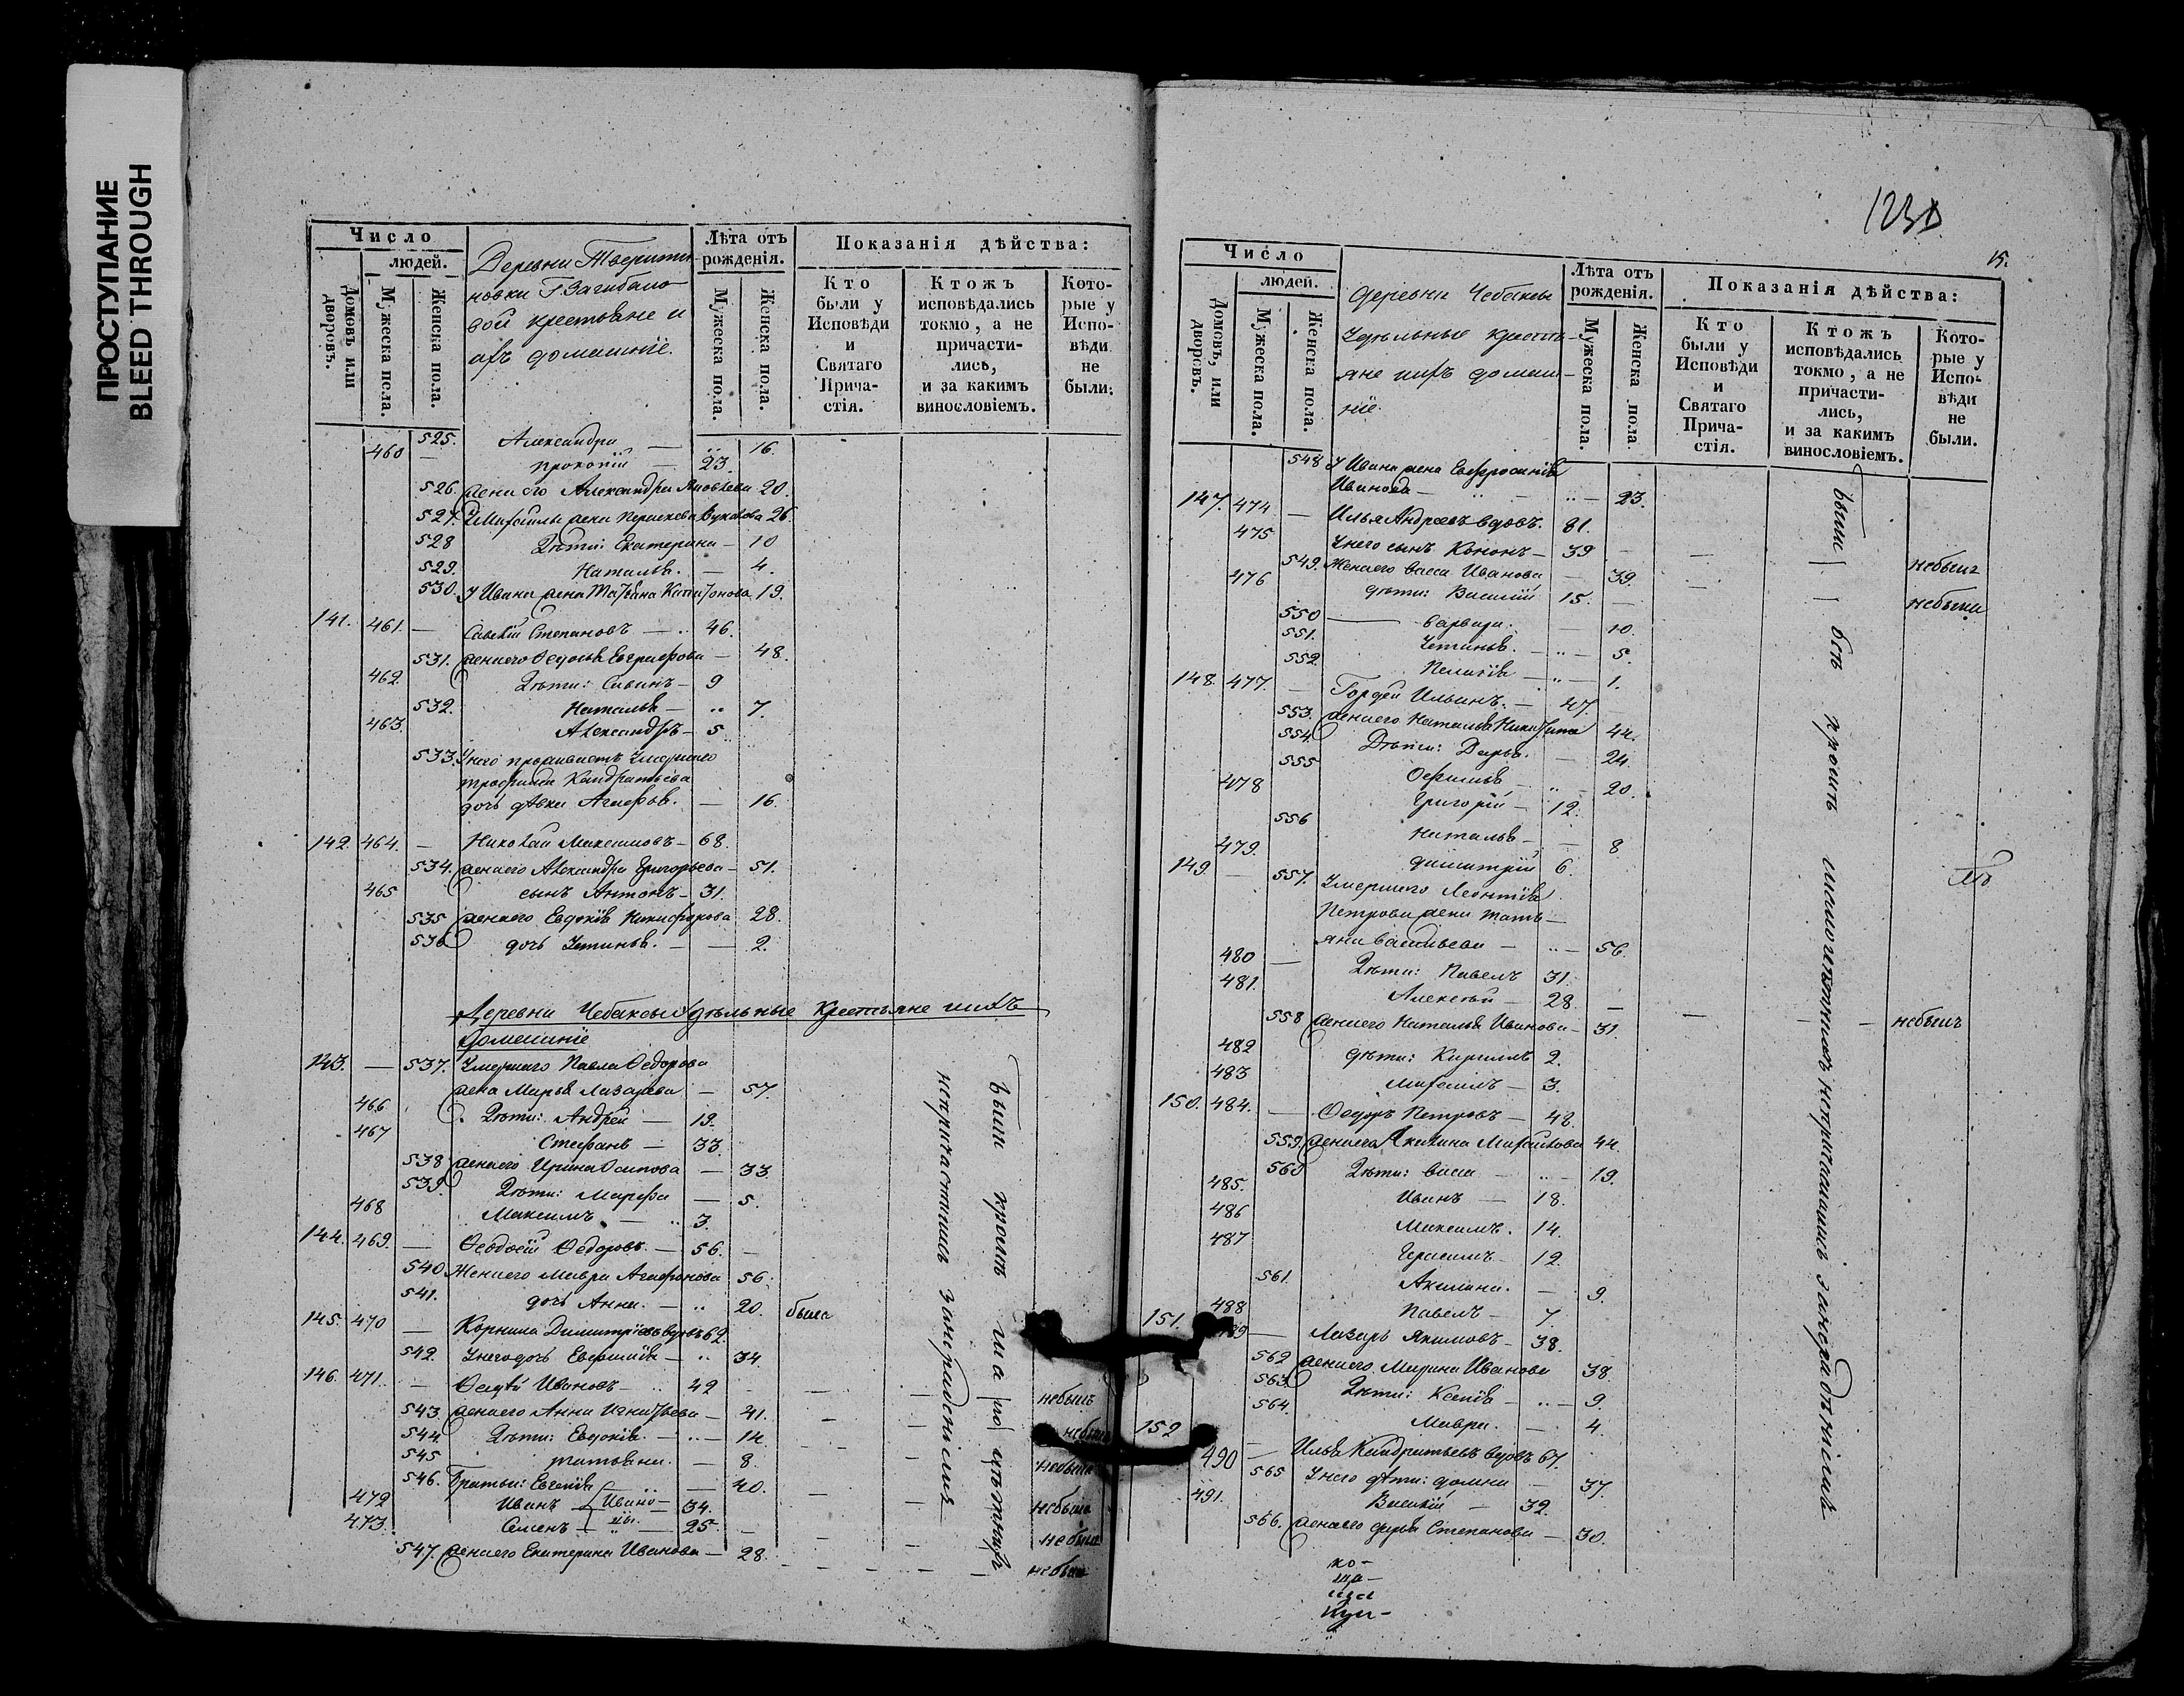 ПРОСТУПАНИЕ
BLEED THROUGH
Число
людей.
Домовъ или дворовъ.
Мужеска пола.
Женска пола.
Деревни Тверити-
новки Г Загибало-
вой крестьяне и
ихъ домашніе.
Лѣта отъ рожденія.
Мужеска пола.
Женска пола.
Показанія дѣйства:
Кто были у Исповѣди и Святаго Прича-стія.
Ктожъ исповѣдались токмо, а не причасти-лись, и за какимъ винословіемъ.
Кото-рые у Испо-вѣди не были.
525. Александра — 16.
460 — Прокопій — 23.
526. жена его Александра Яковлева 20.
527. У Михаила жена Перасковья 26.
528 Дѣти: Екатерина — 10
529. Наталья. — 4.
530. У Ивана жена Татьяна Капитонова 19.
141. 461. — Савелій Степановъ — 46.
531. жена его Федосья Евграфова — 48.
462. Дѣти: Савинъ — 9
532. Наталья — 7.
463. Александръ — 5
533. У него проживаетъ Умершаго
Трофима Кандратьева
дочь дѣвка Агафья. — 16.
142. 464. — Николай Максимовъ — 68.
534. жена его Александра Григорьева — 51.
465 сынъ Антонъ — 31.
535 жена его Евдокія Никифорова 28.
536 дочь Устинья. — 2.
Деревни Чебаксы Удѣльные Крестьяне и ихъ
домашніе
143. — 537. Умершаго Павла Федорова
жена Марья Лазарева — 57.
466 Дѣти: Андрей — 19.
467 Стефанъ — 33.
538 жена его Ирина Осипова — 33.
539. Дѣти: Марфа — 5.
468 Максимъ — 3.
144. 469. — Феодосій Федоровъ. — 56. —
540 Жена его Мавра Агафонова 56.
541. дочь Анна. — 20. была
145. 470 — Корнила Димитріевъ вдовъ 62.
542. У него дочь Евфимія — 34.
146. 471. — Иванов — 42 — небылъ
543 жена его Анна Игнатьева — 41. — небыла
544 Дѣти: Евдокія. — 14. небыла
545 татьяна. — 8.
546. Братья: Евгенія — 40. — небыла
472 Иванъ — Ивано- 34.
473. Семенъ — вы. — 25. — небыли
547. жена его Екатерина Иванова — 28. — небыла
были кромѣ малолѣтныхъ
непричастились занерадѣніемъ
123
15.
Число
людей.
Домовъ, или дворовъ.
Мужеска пола.
Женска пола.
Деревни Чебаксы
Удѣльные кресть-
яне и ихъ домаш-
ніе.
Лѣта отъ рожденія.
Мужеска пола.
Женска пола
Показанія дѣйства:
Кто были у Исповѣди и Святаго Прича-стія.
Ктожъ исповѣдались токмо, а не причасти-лись, и за какимъ винословіемъ.
Кото-рые у Испо-вѣди не были.
548 У Ивана жена Евфросинія
Иванова — 23.
147. 474 — Илья Андреевъ вдовъ. 81.
475 У него сынъ Кононъ — 39 — небылъ
549. Жена его Васса Иванова — 39. — небыла
476 дѣти: Василій 15. —
550 — Варвара. — 10.
551. Устинья. — 5.
552. Пелагія — 1.
148. 477. — Гордей Ильинъ. — 47.
553. жена его Наталья Никитина 44.
554. Дѣти: Дарья. — 24.
555 Офимья — 20.
478 Григорій — 12.
556 Наталья — 8
479. димитрій 6.
149. — 557. Умершаго Леонтія
Петрова жена Тать-
яна Васильева — 56.
480 — Дѣти: Павелъ 31.
481. Алексѣй — 28. — небылъ
558 жена его Наталья Иванова — 31.
482 дѣти: Кириллъ 2.
483 Михаилъ — 3.
150. 484. — Федоръ Петровъ — 48.
559. жена его Акилина Михайлова 44.
560 Дѣти: Васса — 19.
485. Иванъ — 18.
486 Максимъ. 14.
487 Герасимъ — 12.
561. Акилина. — 9.
488 Павелъ — 7.
151. 489 — Лазарь Якимовъ — 38.
562 жена его Марина Иванова 38.
563. Дѣти: Ксенія — 9.
564. Мавра. — 4.
152 490 — Илья Кандратьевъ вдовъ 67.
565 У него дѣти: домна — 37.
491. Василій — 32.
566. жена его дарья Степанова — 30.
были всѣ кромѣ малолѣтныхъ непричастились занерадѣніемъ
ко-
ща-